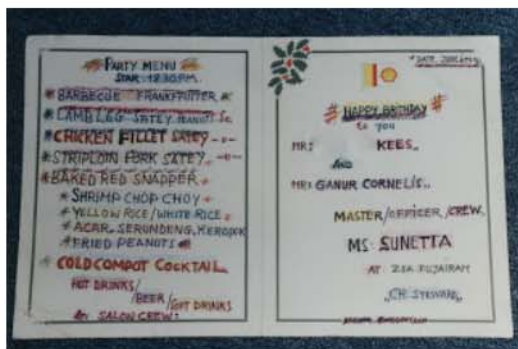 PARTY MENU
STAR: 1830PM.
BARBECUE FRANKFFUTTER
LAMB LEG SATEY PEANUTS Sc
CHICKEN FILLET SATEY -〃-
STRIPLOIN PORK SATEY -〃-
BAKED RED SNAPPER
SHRIMP CHOP CHOY
YELLOW RICE/WHITE RICE
ACAR, SERUNDENG, KEROPOK
FRIED PEANUTS
COLD COMPOT COCKTAIL
HOT DRINKS/
BEER/
SOFT DRINKS
SALON CREW:
DATE
HAPPY BRITHDAY
to you
MR: KEES..
AND
MR: GANUR CORNELIS..
MASTER/OFFICER/CREW.
MS: SUNETTA
AT ZEA-FUJAIRAH
CH STEWARD